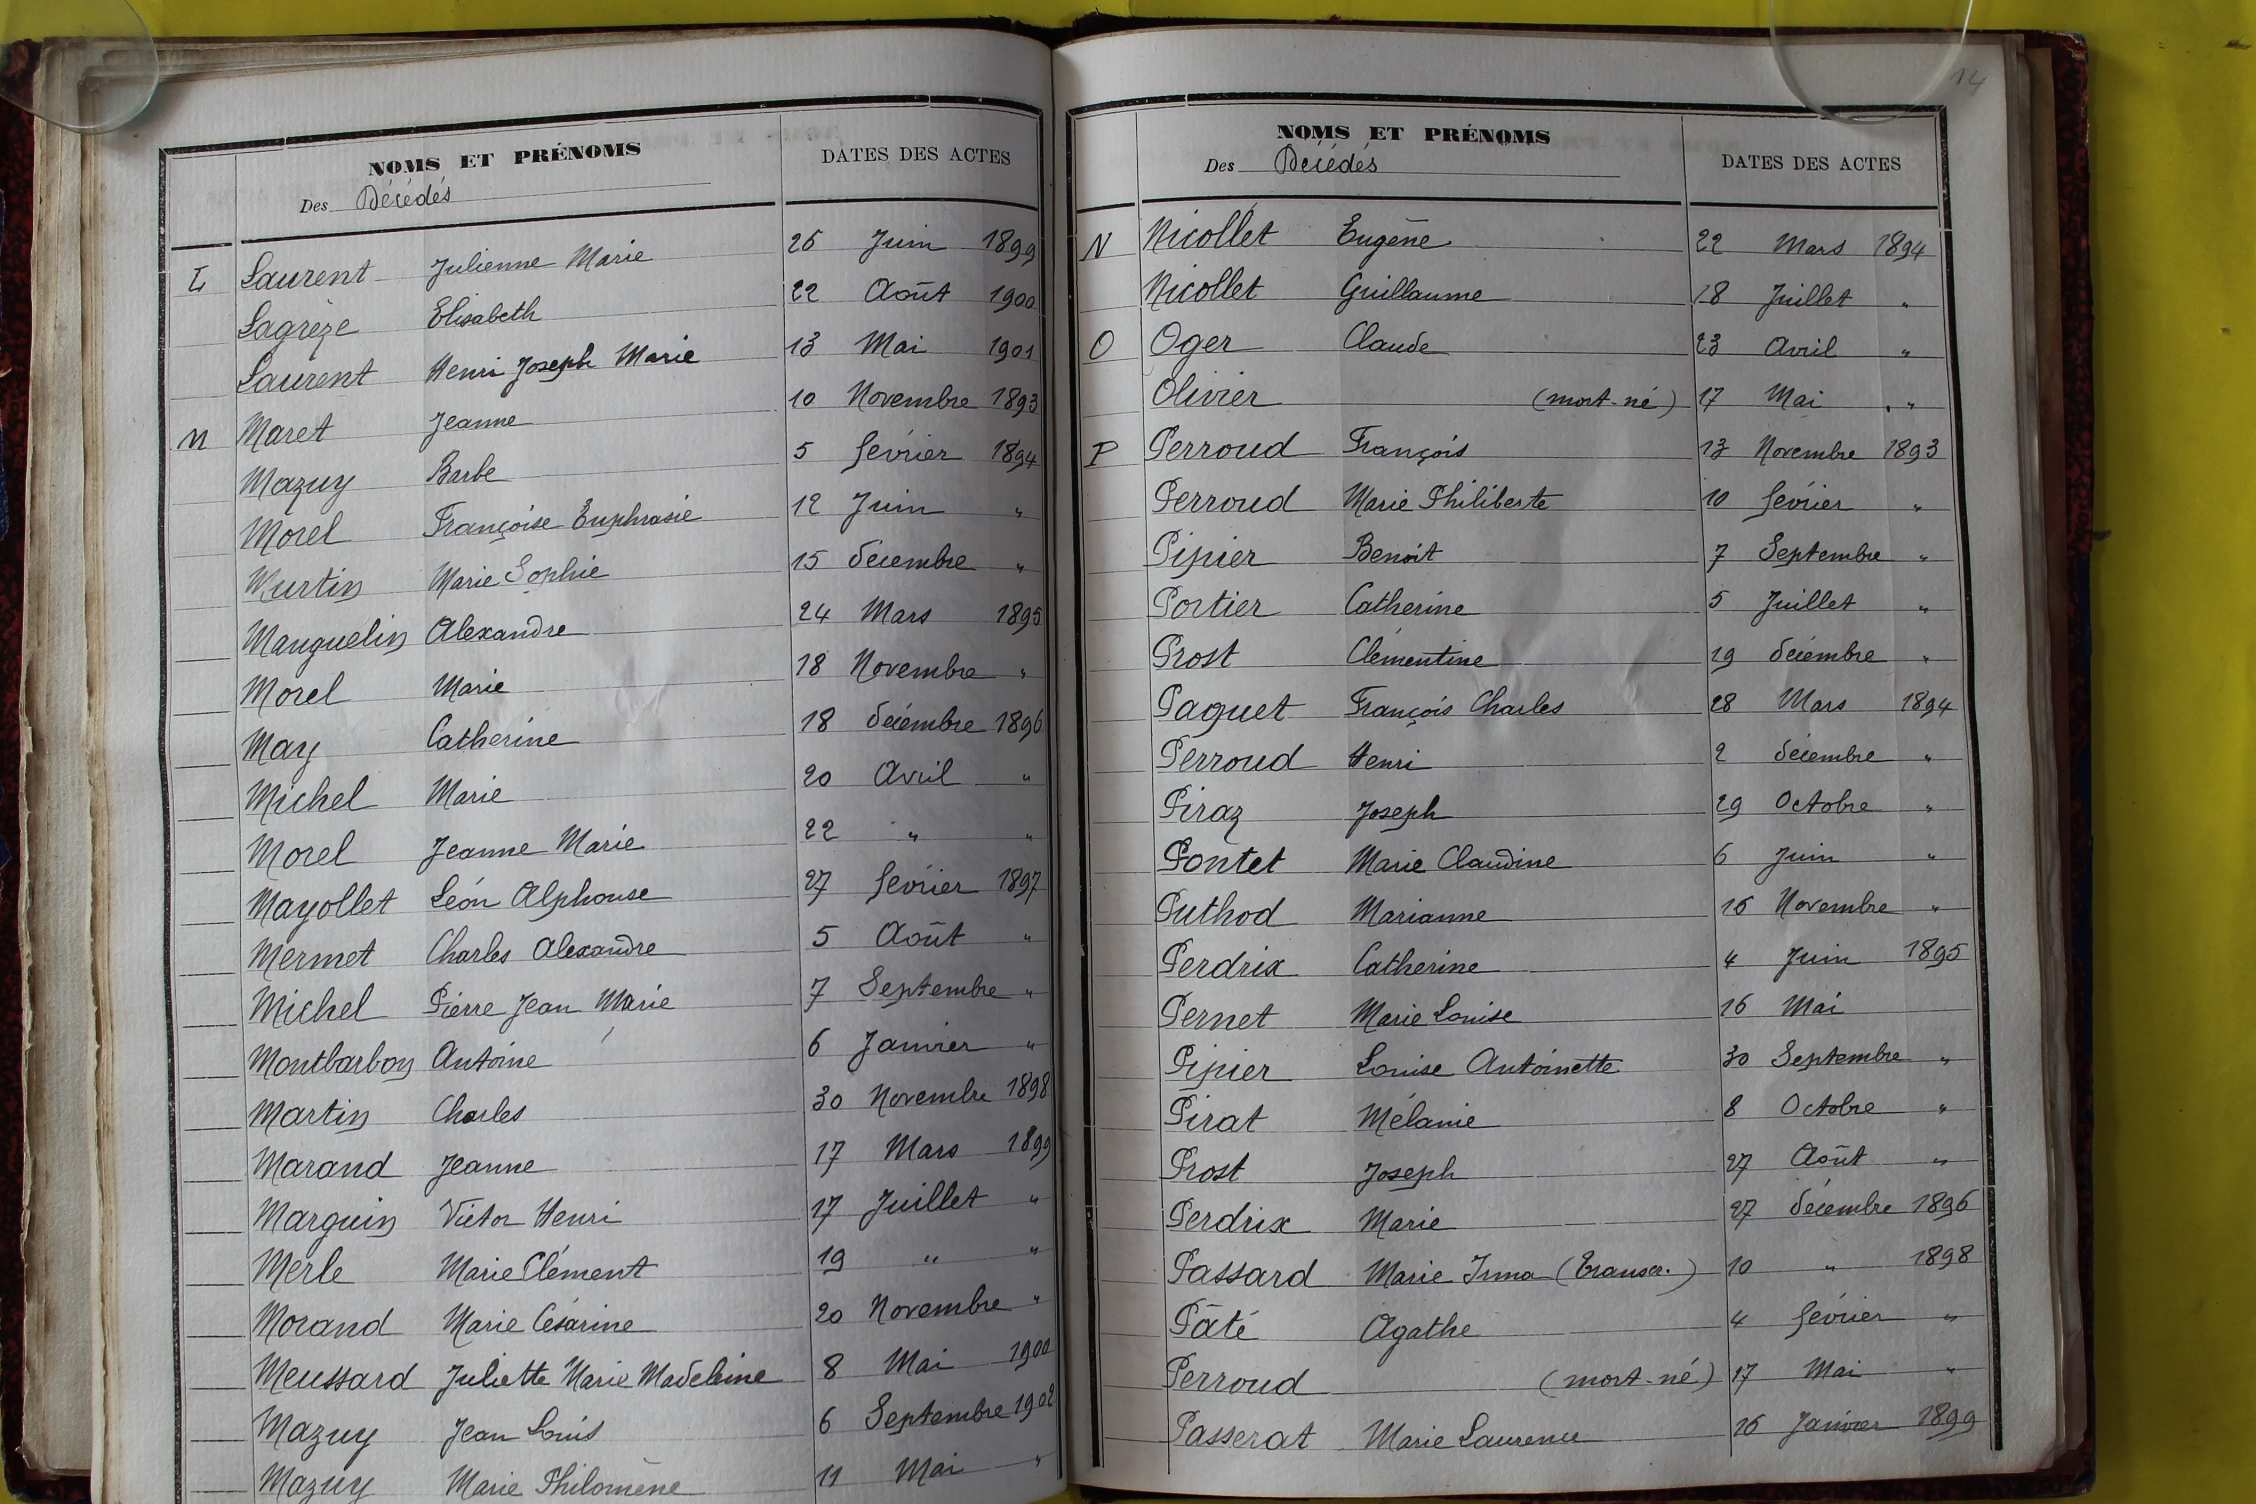 NOMS ET PRÉNOMS
Des Décédés
DATES DES ACTES
L Laurent Julienne Marie 26 Juin 1899
Lagrèze Elisabeth 22 Août 1900
Laurent Henri Joseph Marie 13 Mai 1901
M Maret Jeanne 10 Novembre 1893
Mazuy Barbe 5 février 1894
Morel Françoise Euphrasie 12 Juin "
Murtin Marie Sophie 15 décembre "
Manguelin Alexandre 24 Mars 1895
Morel Marie 18 Novembre "
May Catherine 18 décembre 1896
Michel Marie 20 Avril "
Morel Jeanne Marie 22 " "
Mayollet Léon Alphonse 27 février 1897
Mermet Charles Alexandre 5 Août "
Michel Pierre Jean Marie 7 Septembre "
Montbarbon Antoine 6 Janvier "
Martin Charles 30 Novembre 1898
Marand Jeanne 17 Mars 1899
Marguin Victor Henri 17 Juillet "
Merle Marie Clément 19 " "
Morand Marie Césarine 20 Novembre "
Meussard Juliette Marie Madeleine 8 Mai 1900
Mazuy Jean Louis 6 Septembre 1902
Mazuy Marie Philomène 11 Mai "
14
NOMS ET PRÉNOMS
Des Décédés
DATES DES ACTES
N Nicollet Eugène 22 Mars 1894
Nicollet Guillaume 18 Juillet "
O Oger Claude 23 Avril "
Olivier (mort-né) 17 Mai "
P Perroud François 13 Novembre 1893
Perroud Marie Philiberte 10 février "
Pipier Benoit 7 Septembre "
Portier Catherine 5 Juillet "
Prost Clémentine 19 décembre "
Paquet François Charles 28 Mars 1894
Perroud Henri 2 décembre "
Piraz Joseph 29 Octobre "
Pontet Marie Claudine 6 Juin "
Puthod Marianne 16 Novembre "
Perdrix Catherine 4 Juin 1895
Pernet Marie Louise 16 Mai
Pipier Louise Antoinette 30 Septembre "
Pirat Mélanie 8 Octobre "
Prost Joseph 27 Août "
Perdrix Marie 27 décembre 1896
Passard Marie Irma (Transcr.) 10 " 1898
Pâté Agathe 4 février "
Perroud (mort-né) 17 Mai "
Passerat Marie Laurence 16 Janvier 1899